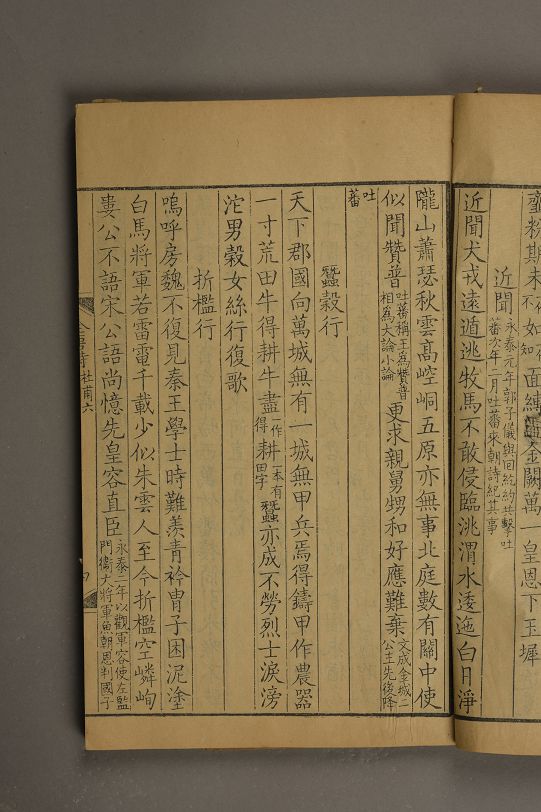 蠻務期未不如知面縛還金闕萬一皇恩下玉墀
近聞永泰元年郭子儀與回紇約共擊吐蕃次年二月吐蕃來朝詩紀其事
近聞犬戎遠遁逃牧馬不敢侵臨洮渭水逶迤白日淨
隴山蕭瑟秋雲高崆峒五原亦無事北庭數有關中使
似聞贊普吐蕃稱王為贊普相為大論小論更求親舅甥和好應難棄文成金城二公主先後降
吐蕃
蠶穀行
天下郡國向萬城無有一城無甲兵焉得鑄甲作農器
一寸荒田牛得耕牛盡一作得耕一本有田字蠶亦成不勞烈士淚滂
沱男穀女絲行復歌
折檻行
嗚呼房魏不復見秦王學士時難羨青衿冑子困泥塗
白馬將軍若雷電千載少似朱雲人至今折檻空嶙峋
婁公不語宋公語尚憶先皇容直臣永泰二年以觀軍容使左監門衛大將軍魚朝恩判國子
全唐詩 杜甫六